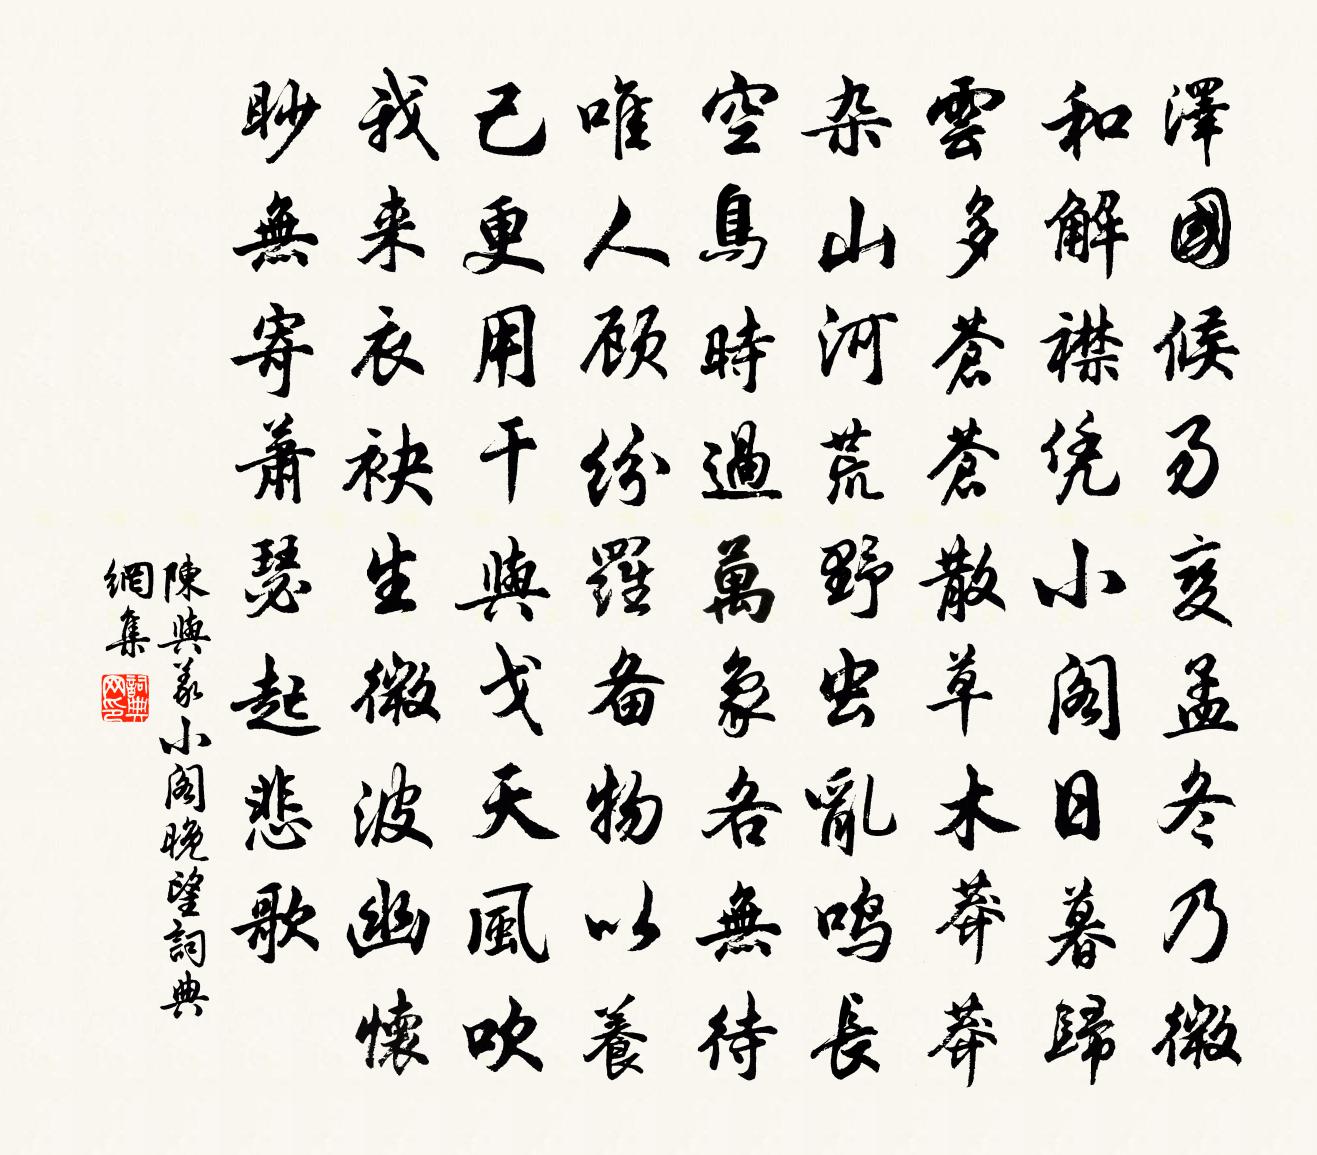 澤國候易变孟冬乃微
和解襟凭小阁日暮歸
雲多蒼蒼散草木莽莽
杂山河荒野虫亂鸣長
空鳥時過萬象各無待
唯人顾纷羅备物以養
己更用干與戈天風吹
我来衣袂生微波幽懷
眇無寄蕭瑟起悲歌
陳與义小阁晚望詞典
網集
詞典网印